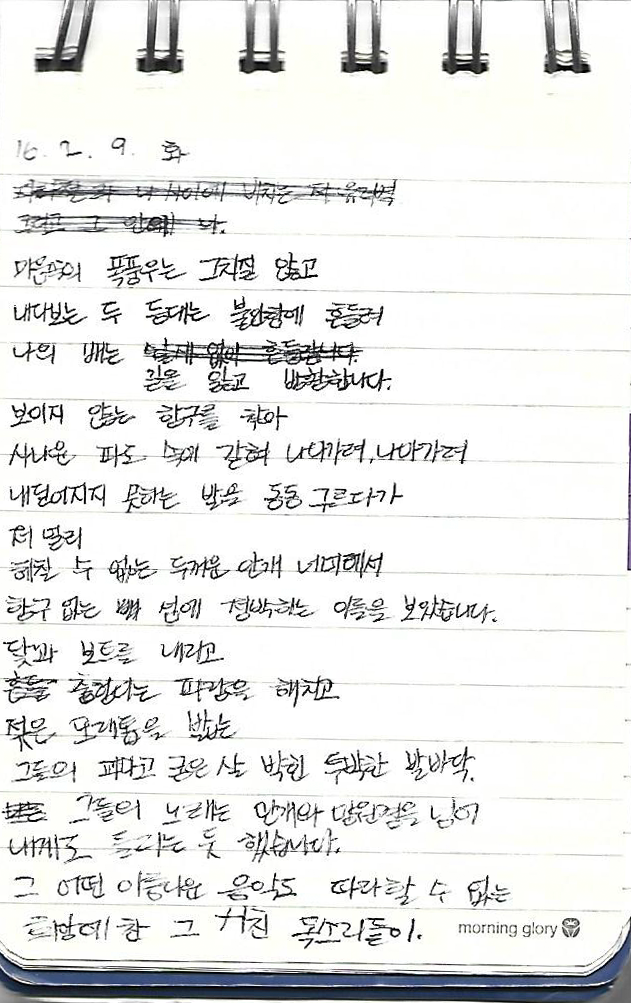 16. 2. 9. 화
나 사이에 비치는 저 유리벽
그리고 그 안에 나.
마음속의 폭풍우는 그치질 않고
내다보는 두 등대는 불안함에 흔들려
나의 배는 흔들립니다.
길을 잃고 방황합니다.
보이지 않는 항구를 찾아
사나운 파도 속에 갇혀 나아가려, 나아가려
내딛어지지 못하는 발을 동동 구르다가
저 멀리
헤칠 수 없는 두꺼운 안개 너머에서
항구 없는 섬에 정박하는 이들을 보았습니다.
닻과 보트를 내리고
출렁이는 파랑을 헤치고
젖은 모래톱을 밟는
그들의 굳은 살 박힌 투박한 발바닥.
그들의 노래는 안개와 망원경을 넘어
내게도 들리는 듯 했습니다.
그 어떤 아름다운 음악도 따라할 수 없는
희망에 찬 그 거친 목소리들이.
morning glory